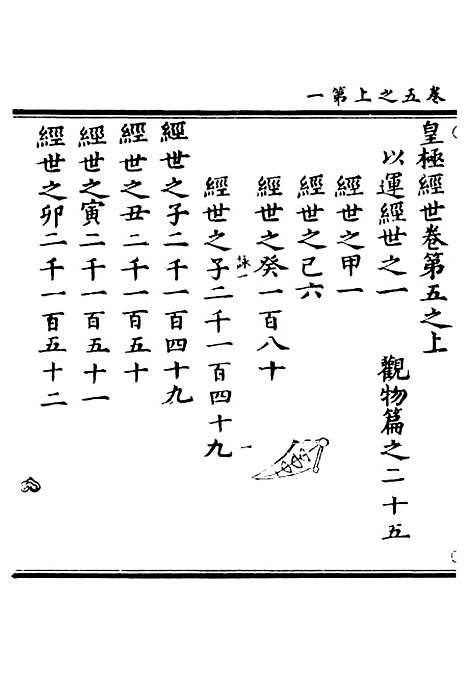 卷五之上第一
皇極經世卷第五之上
以運經世之一　觀物篇之二十五
經世之甲一
經世之己六
經世之癸一百八十
經世之子二千一百四十九
經世之子二千一百四十九
經世之丑二千一百五十
經世之寅二千一百五十一
經世之卯二千一百五十二